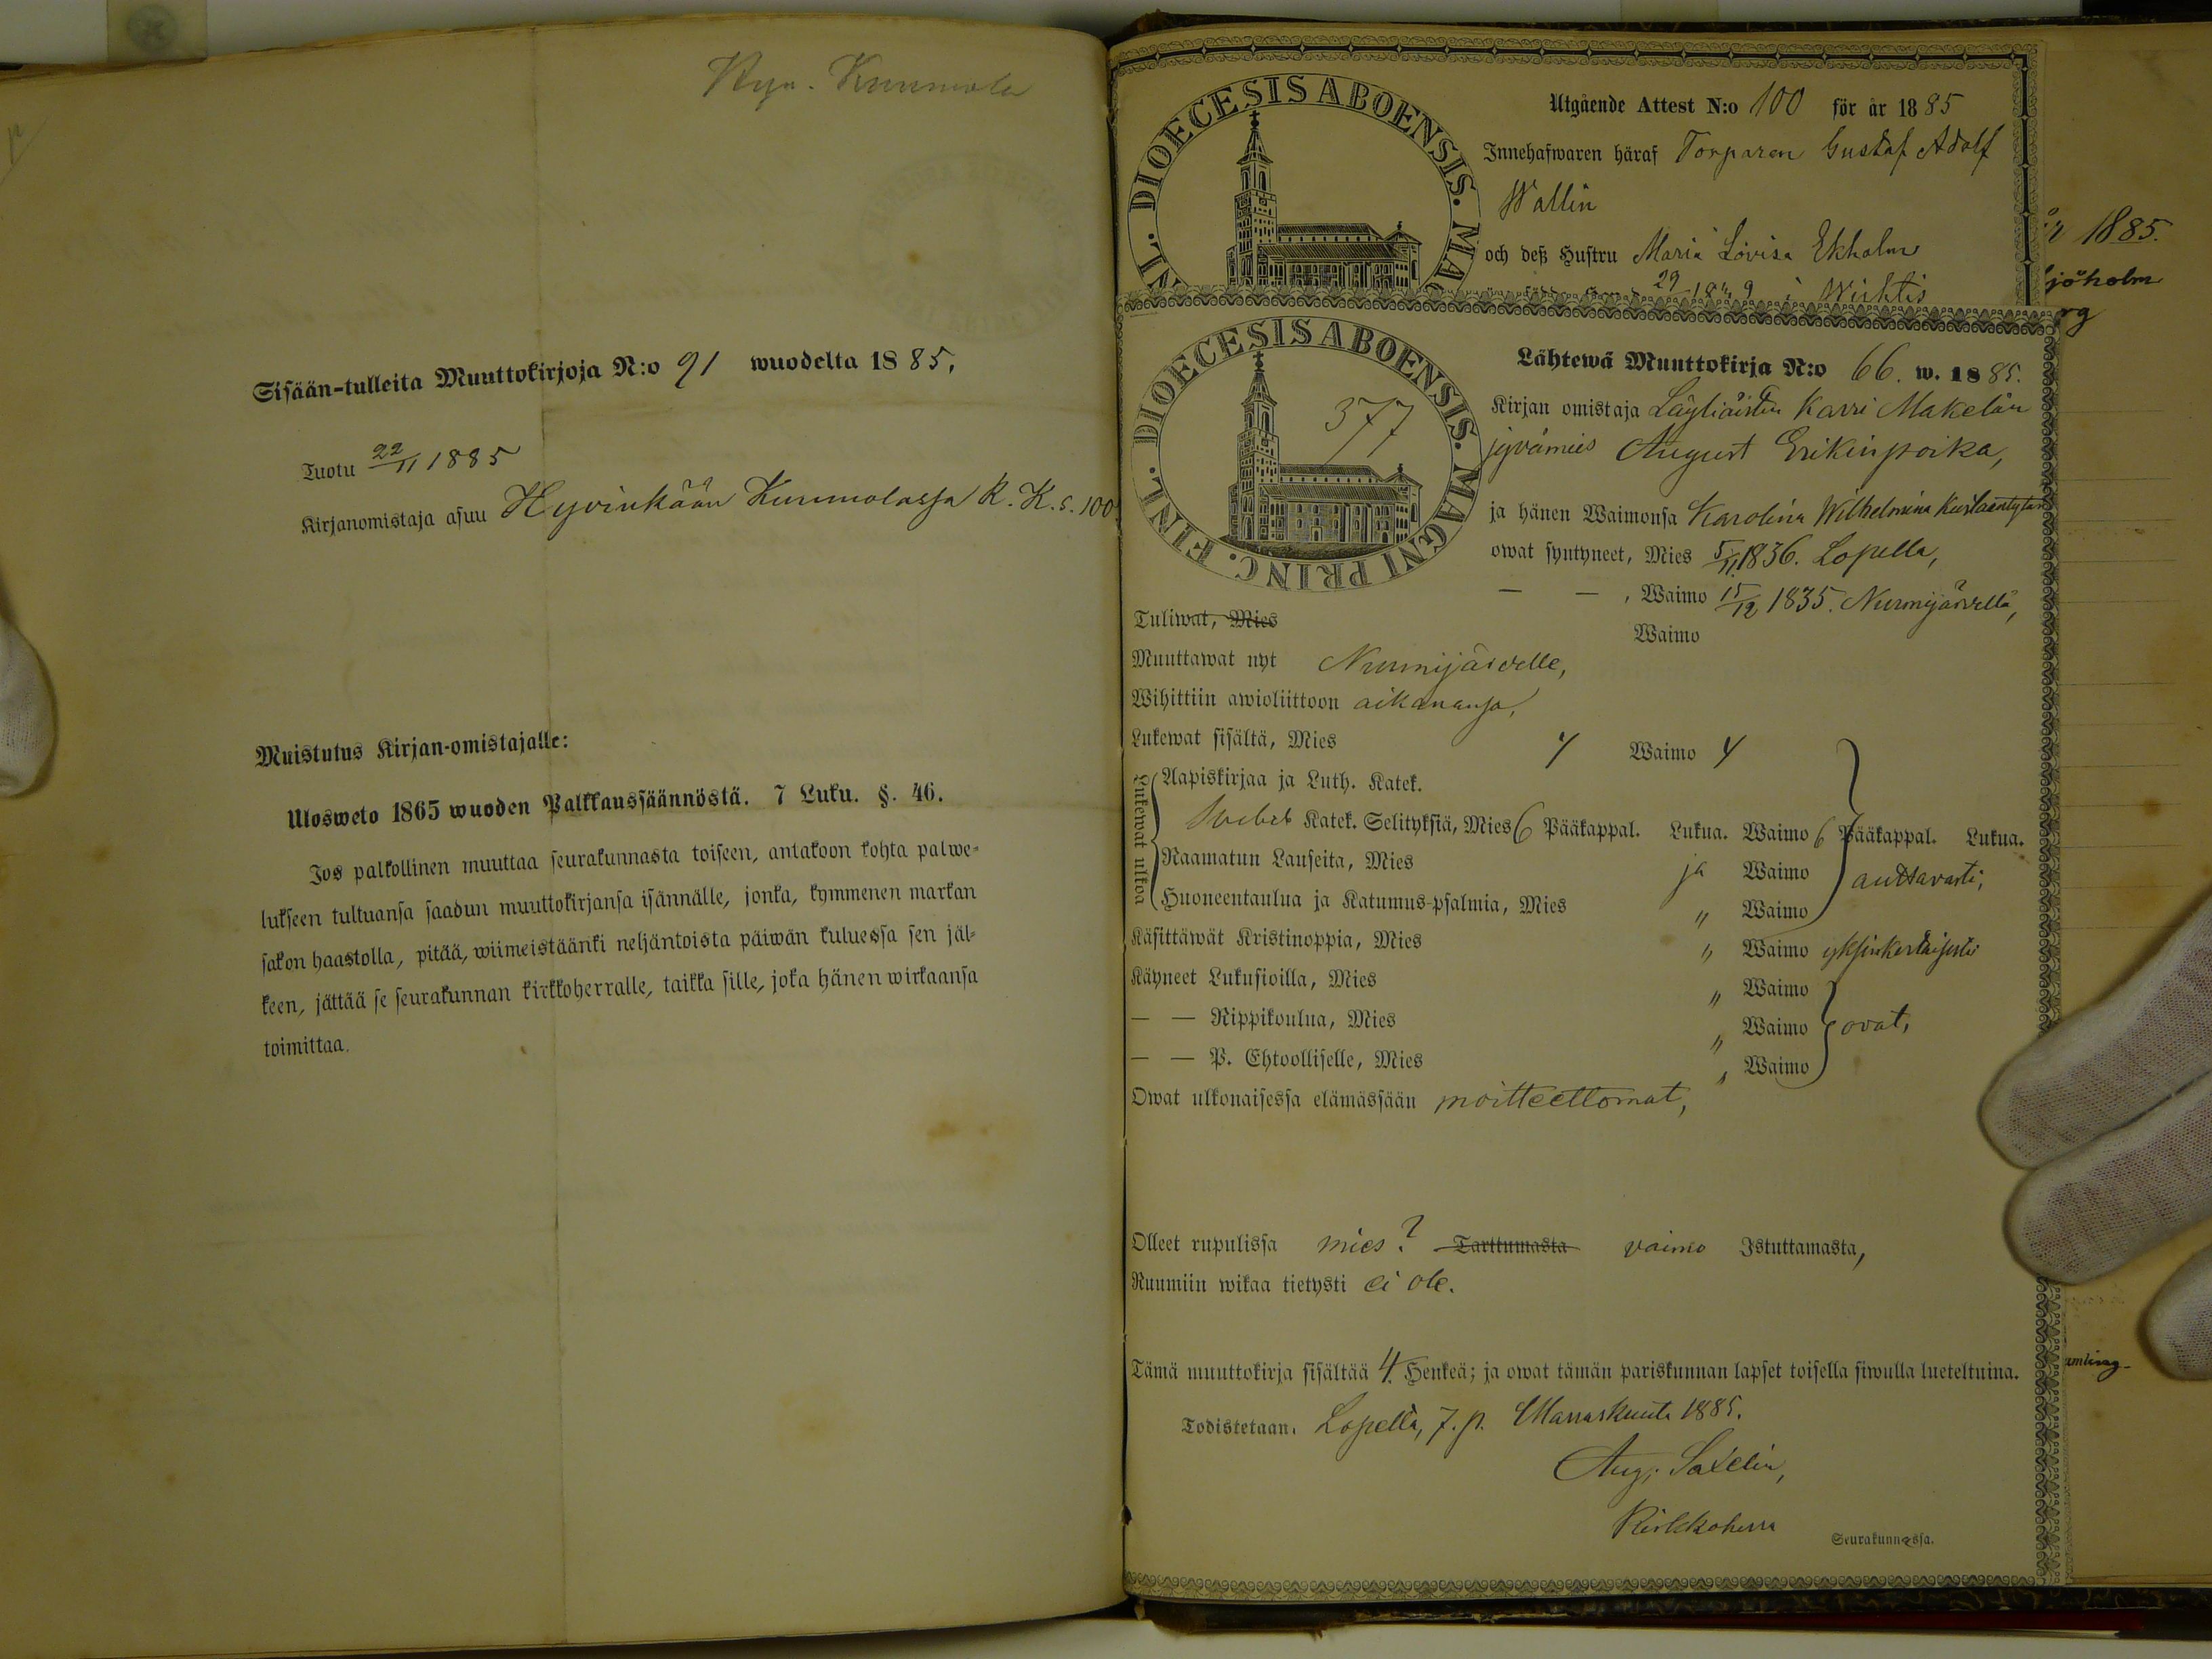 Hyv. Kummola
Sisään-tulleita Muuttokirjoja N:o 91 wuodelta 1885.
Tuotu 22/11 1885
Kirjanomistaja asuu Hyvinkään Kummolassa R. K. s. 100
Muistutus Kirjan-omistajalle:
Ulosweto 1865 wuoden Palkkaussäännöstä. 7 Luku. §. 46.
Jos palkollinen muuttaa seurakunnasta toiseen, antakoon kohta palwe-
lukseen tultuansa saadun muuttokirjansa isännälle, jonka, kymmenen markan
sakon haastolla, pitää, wiimeistäänki neljäntoista päiwän kuluessa sen jäl-
keen, jättää se seurakunnan kirkkoherralle, taikka sille, joka hänen wirkaansa
toimittaa.
DIOECESIS ABOENSIS. MA
NL.
Utgående Attest N:o 100 för år 1885
Innehafwaren häraf Torparen Gustaf Adolf
Wallin
och deß Hustru Maria Lovisa Ekholm
29 i Wichtis
1885.
jöholm
rg
FINL. DIOECESIS ABOENSIS. MAGNI PRINC.
377
Lähtewä Muuttokirja N:o 66. w. 1885.
Kirjan omistaja Läyliäisten Karri Makelän
jyvämies August Erikinpoika,
ja hänen Waimonsa Karolina Wilhelmina
owat syntyneet, Mies 5/11 1836. Lopella,
— — , Waimo 15/12 1835. Nurmijärvellä,
Tuliwat, Mies Waimo
Muuttawat nyt Nurmijärvelle,
Wihittiin awioliittoon aikanansa,
Lukewat sisältä, Mies 4 Waimo 4
Lukewat ulkoa
Aapiskirjaa ja Luth. Katek.
Svebel. Katek. Selityksiä, Mies 6 Pääkappal. Lukua. Waimo 6 Pääkappal. Lukua.
Raamatun Lauseita, Mies ja Waimo auttavasti,
Huoneentaulua ja Katumus-psalmia, Mies " Waimo
Käsittäwät Kristinoppia, Mies " Waimo yksinkertaisesti
Käyneet Lukusioilla, Mies " Waimo
— — Rippikoulua, Mies " Waimo ovat,
— — P. Ehtoolliselle, Mies " Waimo
Owat ulkonaisessa elämässään moitteettomat,
Olleet rupulissa mies? Tarttumasta vaimo Istuttamasta,
Ruumiin wikaa tietysti ei ole.
Tämä muuttokirja sisältää 4 Henkeä; ja owat tämän pariskunnan lapset toisella siwulla lueteltuina.
Todistetaan. Lopella, 7. p. Marraskuuta 1885.
Aug.
Kirkkoherra Seurakunnassa.
amling-